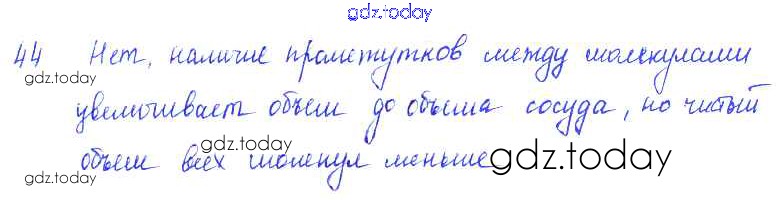 gdz.today
44 Нет, наличие промежутков между молекулами
gdz.today
увеличивает объем до объема сосуда, но чистый
gdz.today
gdz.today
объем всех молекул меньше gdz.today
gdz.today